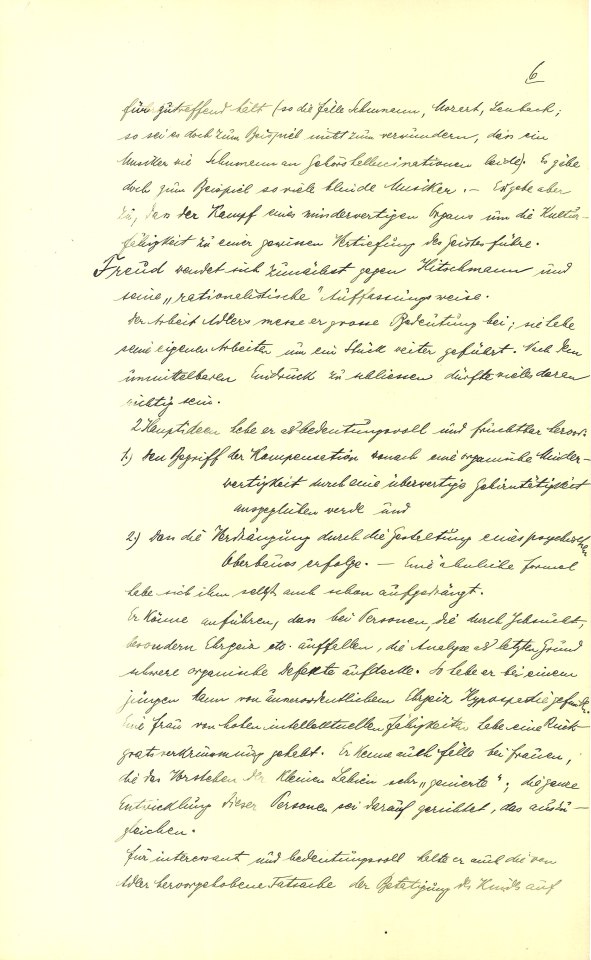 6
für zutreffend hält (so die Fälle Schumann, Mozart, Lenbach;
so sei es doch zum Beispiel nicht zum verwundern, dass ein
Musiker wie Schumann an Gehörshallucinationen leide). Es gäbe
doch zum Beispiel so viele blinde Musiker. — Er gebe aber
zu, dass der Kampf eines minderwertigen Organs um die Kultur-
fähigkeit zu einer gewissen Vertiefung des Geistes führe.
Freud wendet sich zunächst gegen Hitschmann und
seine „rationalistische" Auffassungsweise.
Der Arbeit Adlers messe er grosse Bedeutung bei; sie habe
seine eigenen Arbeiten um ein Stück weiter geführt. Nach dem
unmittelbaren Eindruck zu schliessen dürfte vieles daran
richtig sein.
2 Hauptideen hebe er als bedeutungsvoll und fruchtbar hervor:
1.) Den Begriff der Kompensation wonach eine organische Minder-
wertigkeit durch eine überwertige Gehirntätigkeit
ausgeglichen werde und
2.) Dass die Verdrängung durch die Gestaltung eines psychischen
Oberbaus erfolge. — Eine ähnliche Formel
habe sich ihm selbst auch schon aufgedrängt.
Er könne anführen, dass bei Personen, die durch Ichsucht,
besondern Ehrgeiz etc. auffallen, die Analyse als letzten Grund
schwere organische Defekte aufdecke. So habe er bei einem
jungen Mann von ausserordentlichem Ehrgeiz Hypospadie gefunden.
Eine Frau von hohen intellektuellen Fähigkeiten habe eine Rück-
gratsverkrümmung gehabt. Er kenne auch Fälle bei Frauen,
die das Vorstehen der kleinen Labien sehr „genierte"; die ganze
Entwicklung dieser Personen sei darauf gerichtet, das auszu-
gleichen.
Für interessant und bedeutungsvoll halte er auch die von
Adler hervorgehobene Tatsache der Betätigung des Kinds auf